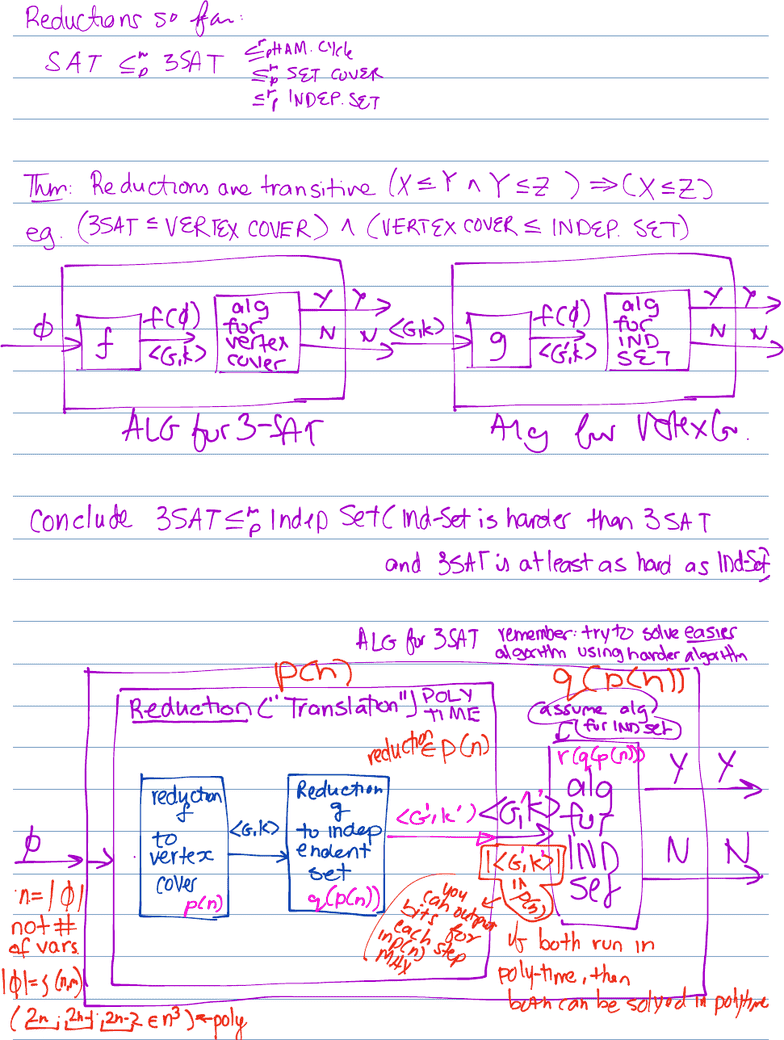 Reductions so far:
SAT ≤ᵐₚ 3SAT ≤ᵐₚ HAM. CYCLE
≤ᵐₚ SET COVER
≤ᵐₚ INDEP. SET
Thm: Reductions are transitive (X≤Y ∧ Y≤Z) ⇒ (X≤Z)
eg. (3SAT ≤ VERTEX COVER) ∧ (VERTEX COVER ≤ INDEP. SET)
ϕ f f(ϕ) <G,k> alg for vertex cover Y Y N N
<G,k> g f(ϕ) <G',k> alg for IND SET Y Y N N
ALG for 3-SAT
Alg for Vertex Co.
Conclude 3SAT ≤ᵐₚ Indep Set (Ind-Set is harder than 3SAT
and 3SAT is at least as hard as Ind-Set)
ALG for 3SAT remember: try to solve easier
algorithm using harder algorithm
p(n)
q(p(n))
Reduction ("Translation") POLY
TIME
reduction ∈ p(n)
(assume alg
for IND set
r(q(p(n)))
alg
for
IND
set
Y Y
N N
reduction
f
to
vertex
cover
p(n)
<G,k>
Reduction
g
to indep
endent
set
q(p(n))
<G',k'>
<G',k'>
|<G',k'>|
in
p(n)
you
can output
bits for
each step
in p(n)
MAX
ϕ
n=|ϕ|
not #
of vars.
|ϕ|=s(n,m)
(2n · 2n-1 · 2n-2 ∈ n³) ← poly
if both run in
poly-time, then
both can be solved in polytime